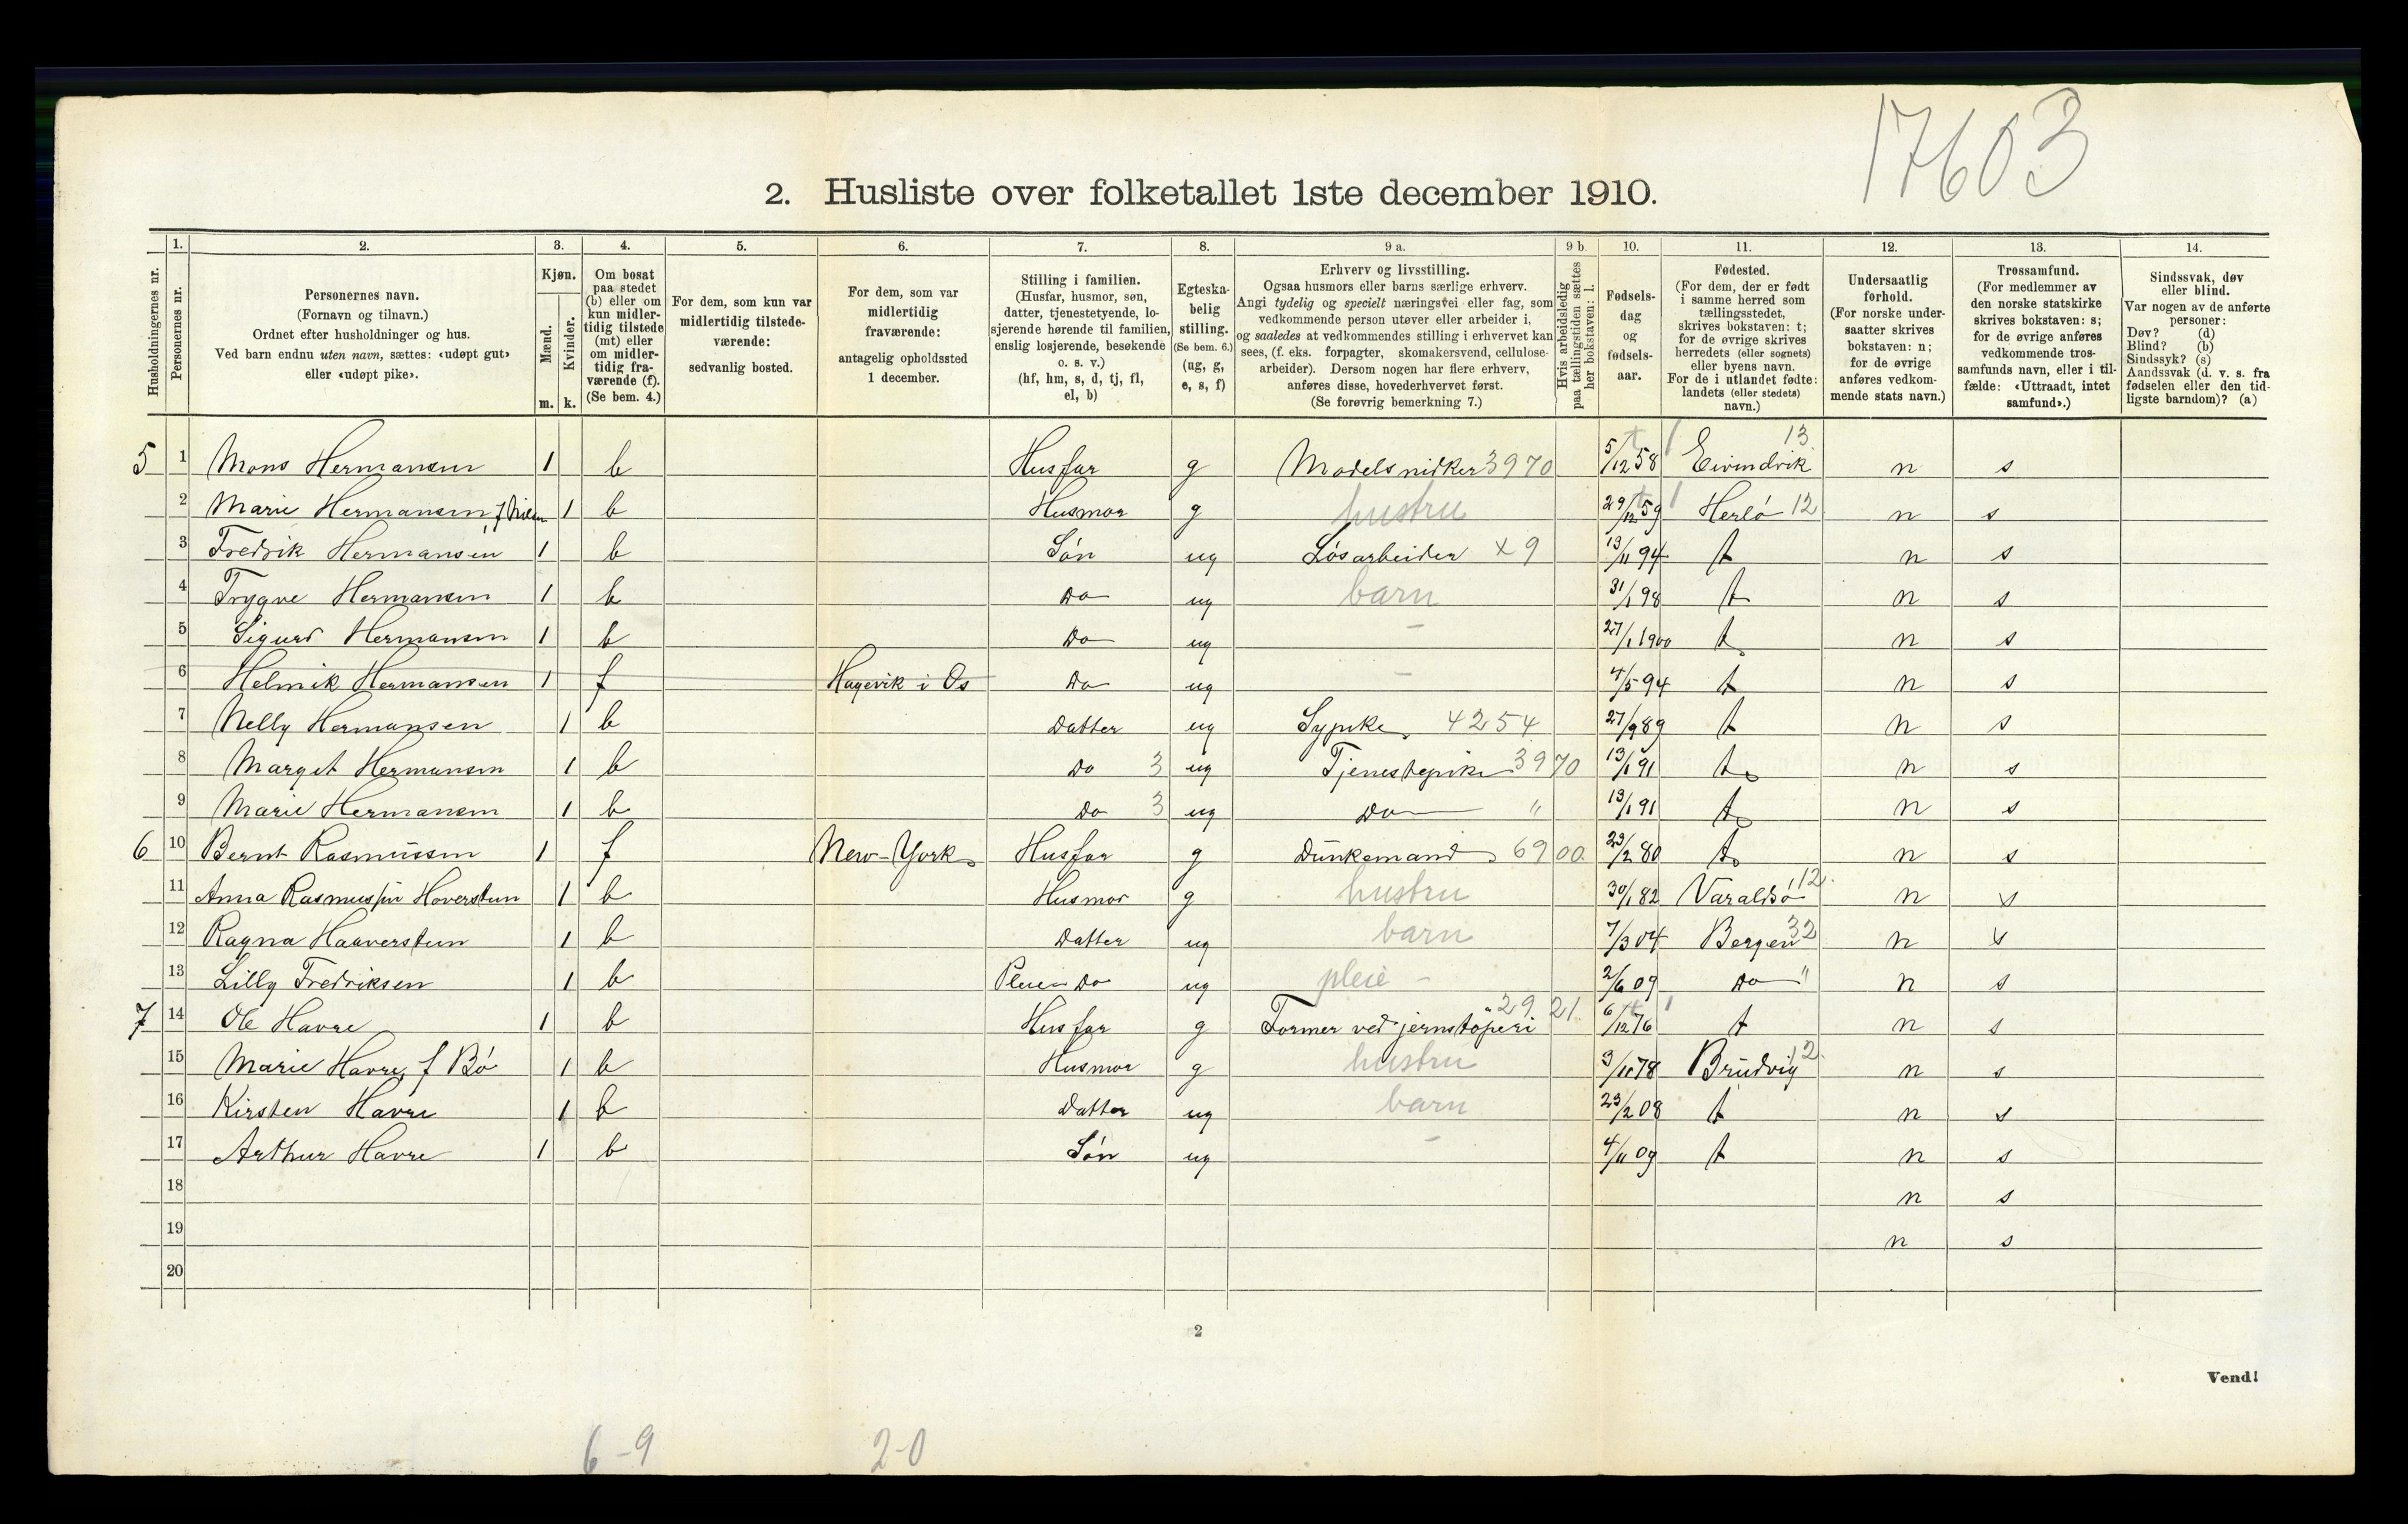 17603
2. Husliste over folketallet 1ste december 1910.
1. 2. 3. 4. 5. 6. 7. 8. 9 a. 9 b. 10. 11. 12. 13. 14.
Husholdningernes nr.
Personernes nr.
Personernes navn.
(Fornavn og tilnavn.)
Ordnet efter husholdninger og hus.
Ved barn endnu uten navn, sættes: «udøpt gut»
eller «udøpt pike».
Kjøn.
Mænd.
Kvinder.
m. k.
Om bosat
paa stedet
(b) eller om
kun midler-
tidig tilstede
(mt) eller
om midler-
tidig fra-
værende (f).
(Se bem. 4.)
For dem, som kun var
midlertidig tilstede-
værende:
sedvanlig bosted.
For dem, som var
midlertidig
fraværende:
antagelig opholdssted
1 december.
Stilling i familien.
(Husfar, husmor, søn,
datter, tjenestetyende, lo-
sjerende hørende til familien,
enslig losjerende, besøkende
o. s. v.)
(hf, hm, s, d, tj, fl,
el, b)
Egteska-
belig
stilling.
(Se bem. 6.)
(ug, g,
e, s, f)
Erhverv og livsstilling.
Ogsaa husmors eller barns særlige erhverv.
Angi tydelig og specielt næringsvei eller fag, som
vedkommende person utøver eller arbeider i,
og saaledes at vedkommendes stilling i erhvervet kan
sees, (f. eks. forpagter, skomakersvend, cellulose-
arbeider). Dersom nogen har flere erhverv,
anføres disse, hovederhvervet først.
(Se forøvrig bemerkning 7.)
Hvis arbeidsledig
paa tællingstiden sættes
her bokstaven: l.
Fødsels-
dag
og
fødsels-
aar.
Fødested.
(For dem, der er født
i samme herred som
tællingsstedet,
skrives bokstaven: t;
for de øvrige skrives
herredets (eller sognets)
eller byens navn.
For de i utlandet fødte:
landets (eller stedets)
navn.)
Undersaatlig
forhold.
(For norske under-
saatter skrives
bokstaven: n;
for de øvrige
anføres vedkom-
mende stats navn.)
Trossamfund.
(For medlemmer av
den norske statskirke
skrives bokstaven: s;
for de øvrige anføres
vedkommende tros-
samfunds navn, eller i til-
fælde: «Uttraadt, intet
samfund».)
Sindssvak, døv
eller blind.
Var nogen av de anførte
personer:
Døv? (d)
Blind? (b)
Sindssyk? (s)
Aandssvak (d. v. s. fra
fødselen eller den tid-
ligste barndom)? (a)
5 1 Mons Hermansen 1 b Husfar g Modelsnidker 3970 5/12 58 Eivindvik 13 n s
2 Marie Hermansen, f 1 b Husmor g hustru 29/12 59 Herlö 12 n s
3 Fredrik Hermansen 1 b Sön ug Lösarbeider x 9 13/11 94 t n s
4 Trygve Hermansen 1 b Do ug barn 31/1 98 t n s
5 Sigurd Hermansen 1 b Do ug - 27/1 1900 t n s
6 Helmik Hermansen 1 f Hagevik i Os Do ug - 4/5 94 t n s
7 Nelly Hermansen 1 b Datter ug Sypike 4254 27/9 89 t n s
8 Margit Hermansen 1 b Do 3 ug Tjenestepike 3970 13/1 91 t n s
9 Marie Hermansen 1 b Do 3 ug Do " 13/1 91 t n s
6 10 Bernt Rasmussen 1 f New-York Husfar g Dunkemand 6900 23/2 80 t n s
11 Anna Rasmussen Haverstun 1 b Husmor g hustru 30/1 82 Varaldsö 12 n s
12 Ragna Haaverstun 1 b Datter ug barn 7/3 04 Bergen 32 n s
13 Lilly Fredriksen 1 b Pleie Do ug pleie - 2/6 09 Do " n s
7 14 Ole Havre 1 b Husfar g Former ved jernstöperi 2921 6/12 76 t n s
15 Marie Havre, f Bö 1 b Husmor g hustru 3/11 78 Brudvig 12 n s
16 Kirsten Havre 1 b Datter ug barn 23/2 08 t n s
17 Arthur Havre 1 b Sön ug - 4/11 09 t n s
18 n s
19 n s
20
2
Vend!
6-9 2-0